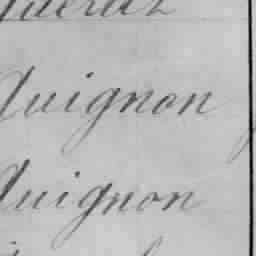 Quignon
Quignon